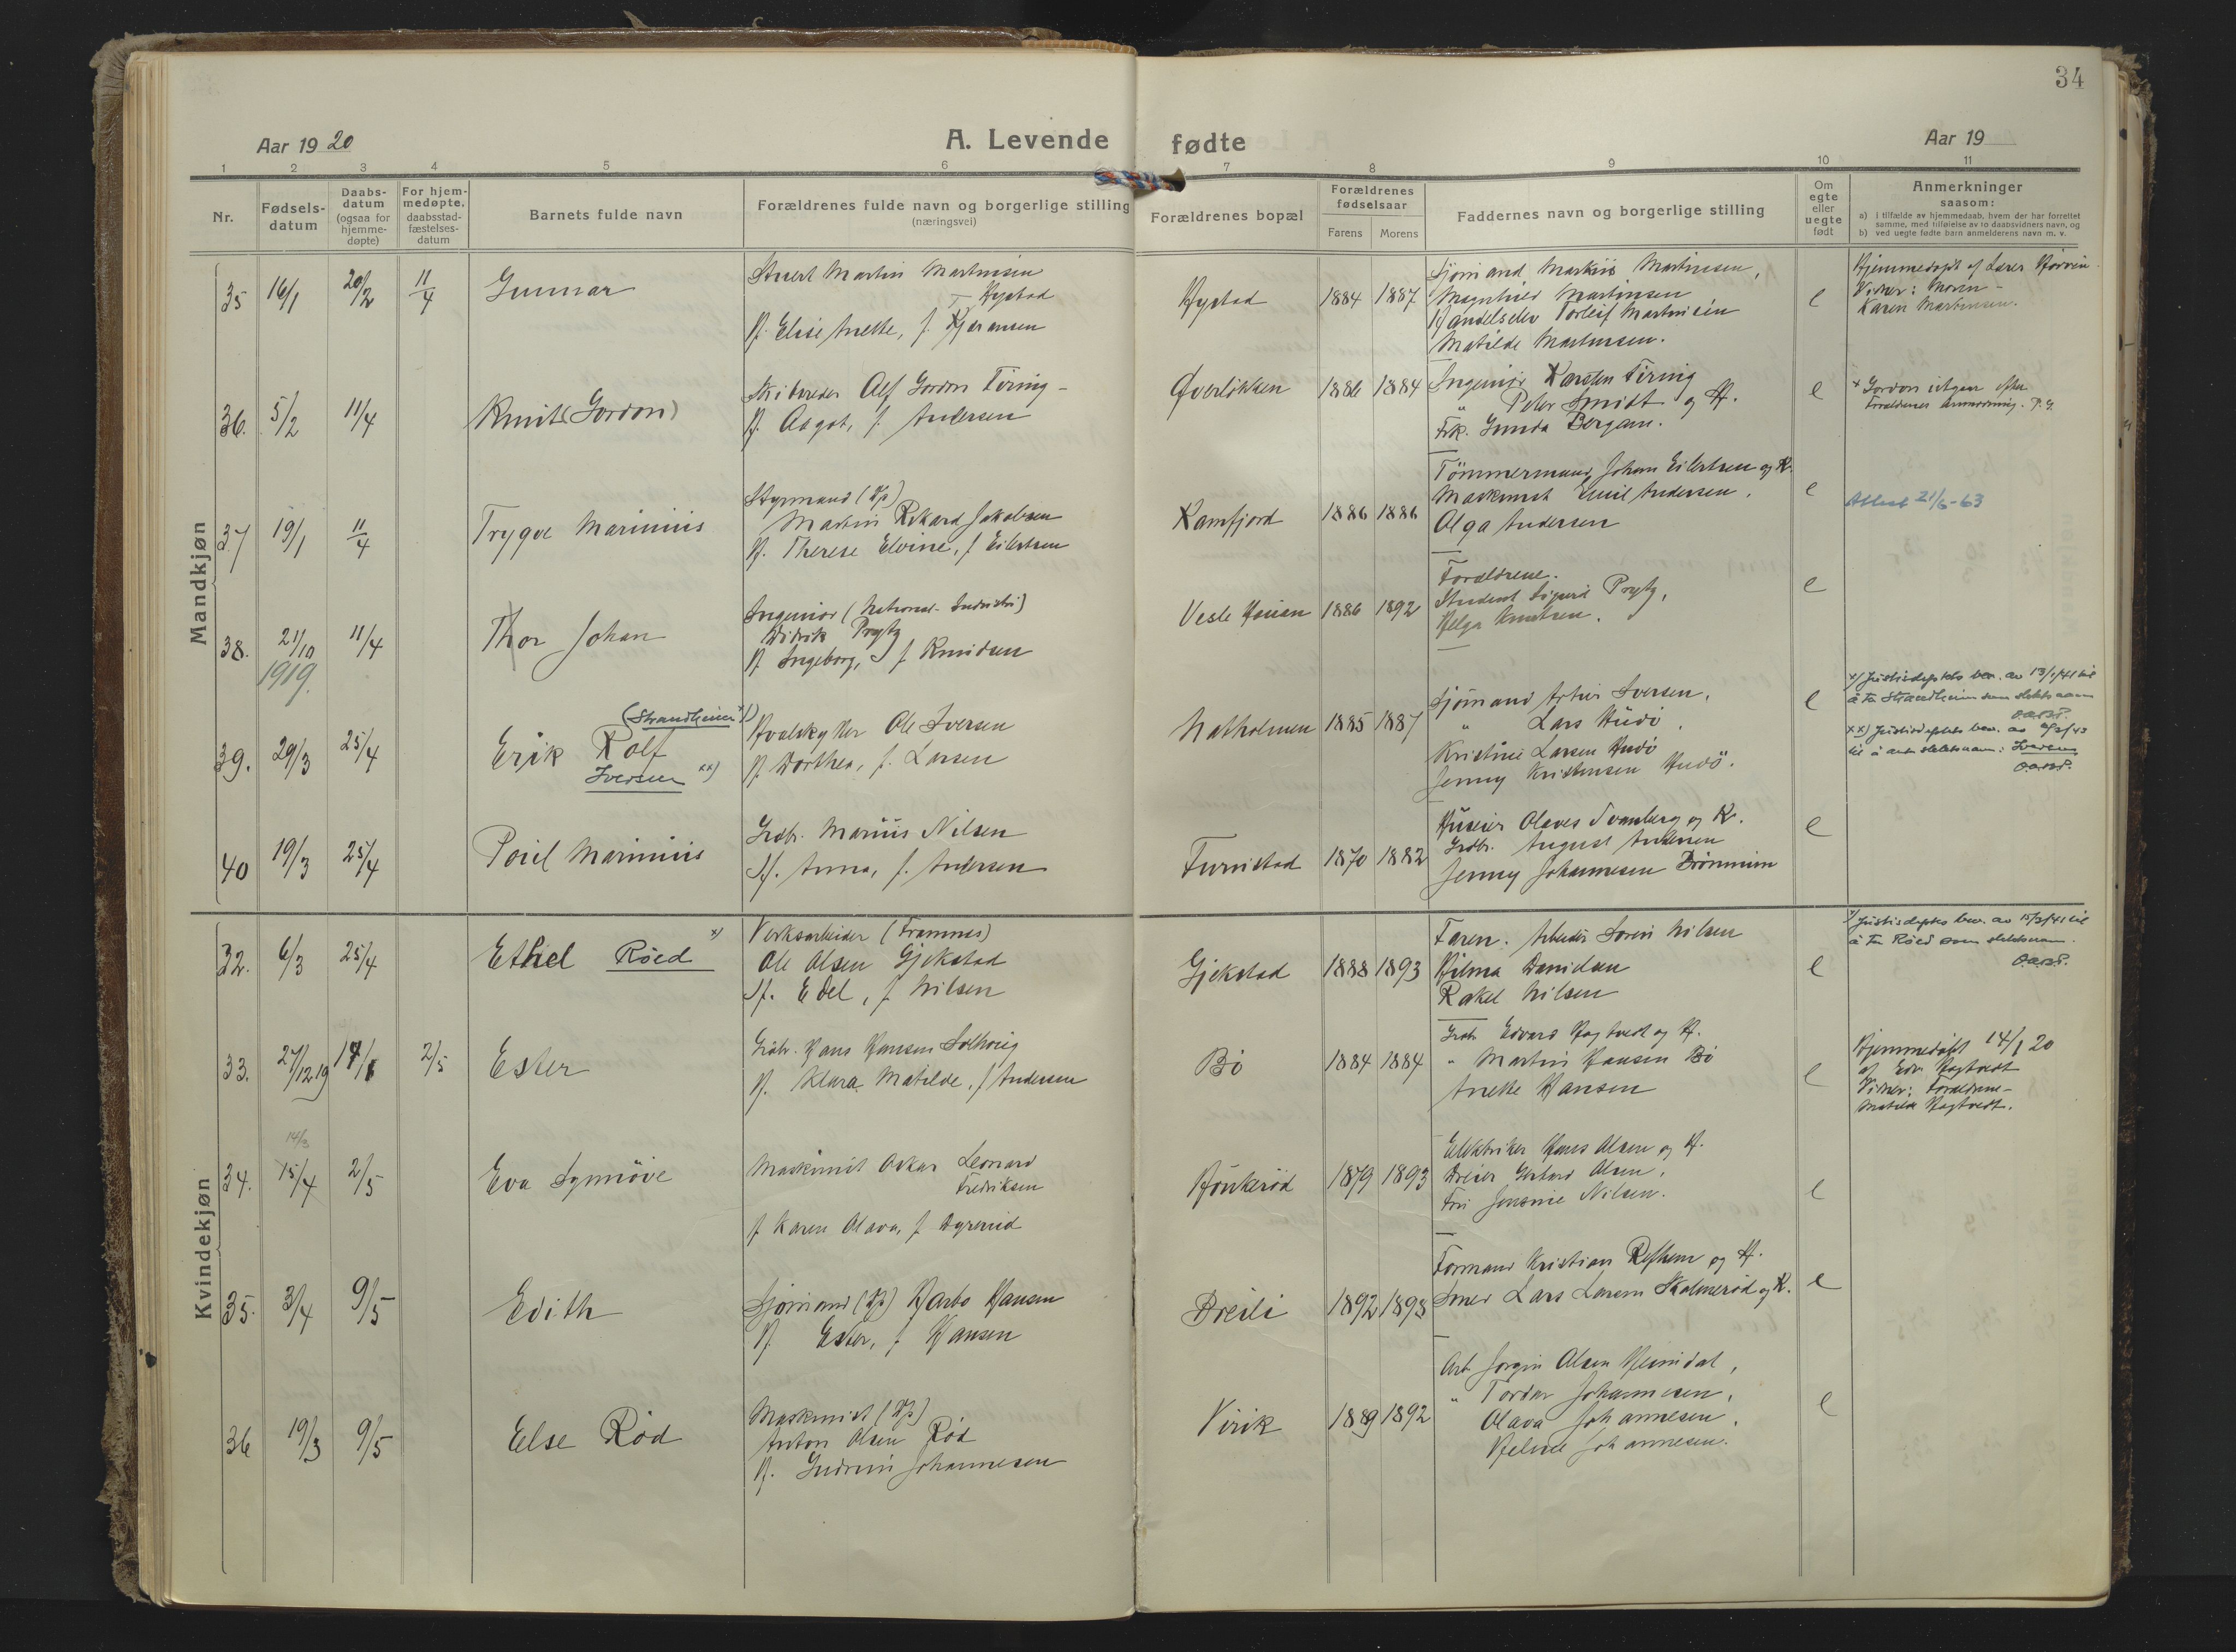 34
Aar 1920
A. Levende fødte
Aar 19
1 2 3 4 5 6 7 8 9 10 11
Nr.
Fødsels-
datum
Daabs-
datum
(ogsaa for
hjemme-
døpte)
For hjem-
medøpte,
daabsstad-
fæstelses-
datum
Barnets fulde navn
Forældrenes fulde navn og borgerlige stilling
(næringsvei)
Forældrenes bopæl
Forældrenes
fødselsaar
Farens Morens
Faddernes navn og borgerlige stilling
Om
egte
eller
uegte
født
Anmerkninger
saasom:
a) I tilfælde av hjemmedaab, hvem der har forrettet
samme, med tilføielse av to daabsvidners navn, og
b) ved uegte fødte barn anmelderens navn m. v.
Mandkjøn
35 16/1 20/2 11/4 Gunnar
Martin Martinsen
Hystad
H. Elise Anette, f.
Hystad 1884 1887
Sjømand Markus Martinsen,
Magnhild Martinsen
Handelselev Torleif Martinsen
Matilde Martinsen.
e
Hjemmedøpt af Lærer
Vidner: Moren -
Karen Martinsen.
36. 5/2 11/4 Knut (Gordon)
Skibsreder Alf Gordon Tiring -
H. Aagot, f. Andersen
Øverløkken 1886 1884
Ingeniør Karsten Tiring
" Peter Smidt og H.
Frk. Gunda Bergan.
e
x Gordon utgaar efter
Forældrenes anmodning. P. G.
37 19/1 11/4 Trygve Marinius
Styrmand (Hp)
Martin Rikard Jakobsen
H. Therese Elvine, f. Eilertsen
Kamfjord 1886 1886
Tømmermand Johan Eilertsen og K.
Maskinist Emil Andersen,
Olga Andersen
e
Attest 21/5-63
38. 21/10 1919. 11/4 Thor Johan
Ingeniør (National-Industri)
Didrik Prytz
H. Ingeborg, f. Knudsen
Vesle Hauan 1886 1892
Forældrene.
Student Sigurd Prytz,
Helga Knutsen.
e
39. 29/3 25/4 Erik Rolf
(Strandheim x))
Iversen xx)
Hvalskytter Ole Iversen
H. Dorthea, f. Larsen
Natholmen 1885 1887
Sjømand Artur Iversen,
" Lars Hudø,
Kristine Larsen Hudø
Jenny Kristensen Hudø.
e
x) Justisdeptets bev. av 13/1/41 til
å ta Strandheim som slektsnavn
xx) Justisdeptets bev. av
til å anta slektsnavn: Iversen
40 19/3 25/4 Poul Marinius
Grdbr. Marius Nilsen
H. Anna, f. Andersen
Furustad 1870 1882
Huseier Olaves Svanberg og K.
Grdbr. August Andersen
Jenny Johannesen
e
Kvindekjøn
32. 6/3 25/4 Ethel Røed x)
Verksarbeider (Framnæs)
Ole Olsen Gjekstad
H. Edel, f. Nilsen
Gjekstad 1888 1893
Faren. Arbeider Søren Nilsen
Hilma Danielsen
Rakel Nilsen
e
x) Justisdeptets bev. av 15/3/41 til
å ta Røed som slektsnavn.
33. 27/12 19 14/1 2/5 Ester
Grdbr. Hans Hansen Solhoug
H. Klara Matilde, f. Andersen
Bø 1884 1884
Grdbr. Edvard Hagtvedt og H.
" Martin Hansen Bø
Anette Hansen
e
Hjemmedøpt 14/1 20
af Edv. Hagtvedt
Vidner: Forældrene -
Matilde Hagtvedt.
34. 14/3 15/4 2/5 Eva Synnøve
Maskinist Oskar Leonard
Fredriksen
H. Karen Olava, f.
1879 1893
Elektriker Hans Olsen og H.
Dreier Gerhard Olsen,
Nilsen.
e
35. 3/4 9/5 Edith
Sjømand (Hp) Harbo Hansen
H. Ester, f. Hansen
Breili 1892 1898
Formand Kristian og H.
Smed Lars Larsen og K.
e
36 19/3 9/5 Else Rød
Maskinist (Hp)
Anton Olsen Rød
H. Gudrun Johannesen
Virik 1889 1892
Arb Jørgen Olsen Heimdal,
" Tordar Johannesen,
Olava Johannesen,
Johannesen.
e